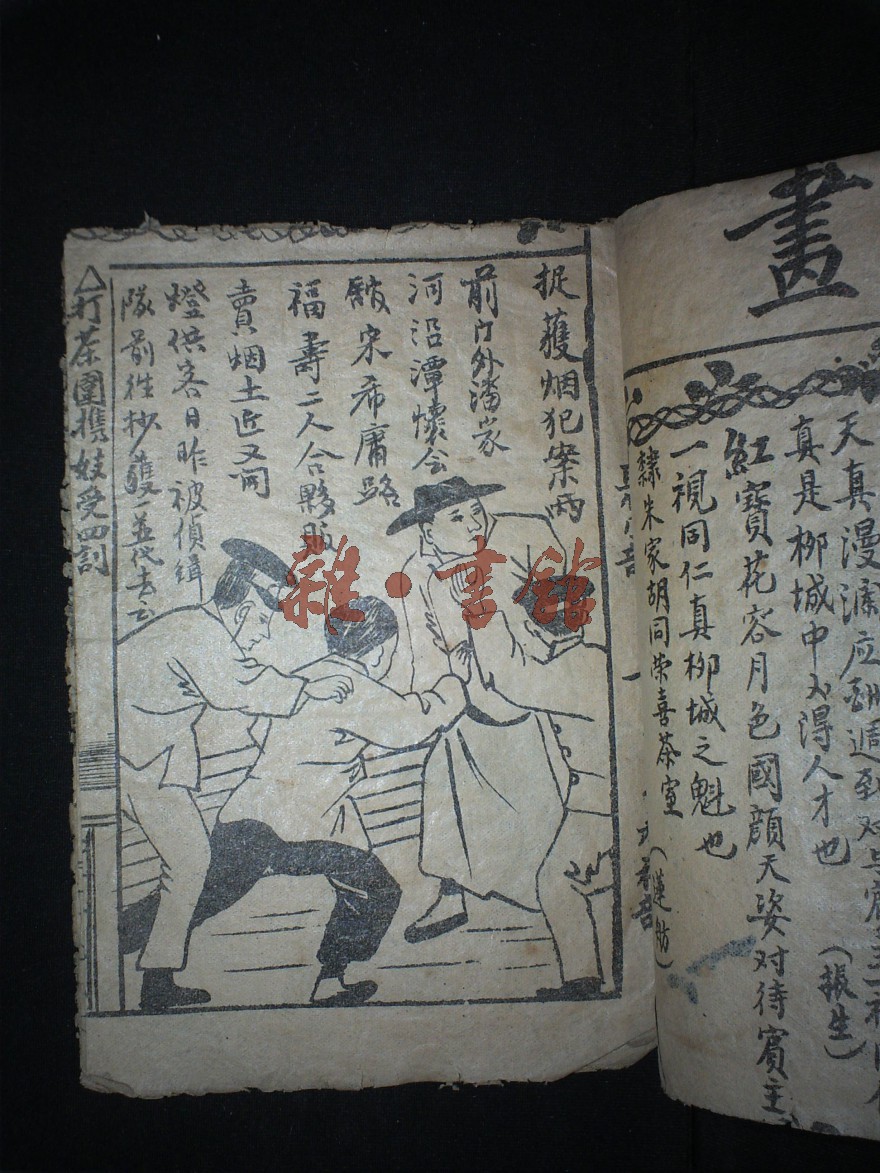 畫
天真漫
真是柳城中不得人才也
(振生)
紅寶花容月色國顔天姿对待賓主
一視同仁真柳城之魁也
隸朱家胡同荣喜茶室
(蓮舫)
捉獲烟犯案兩
前门外潘家
河沿潭懷会
宋希庸路
福壽二人合夥販
賣烟土近又间
燈供客日昨被偵缉
隊前往抄獲一並代去云
△打茶圍携妓受四訓
雜·書館